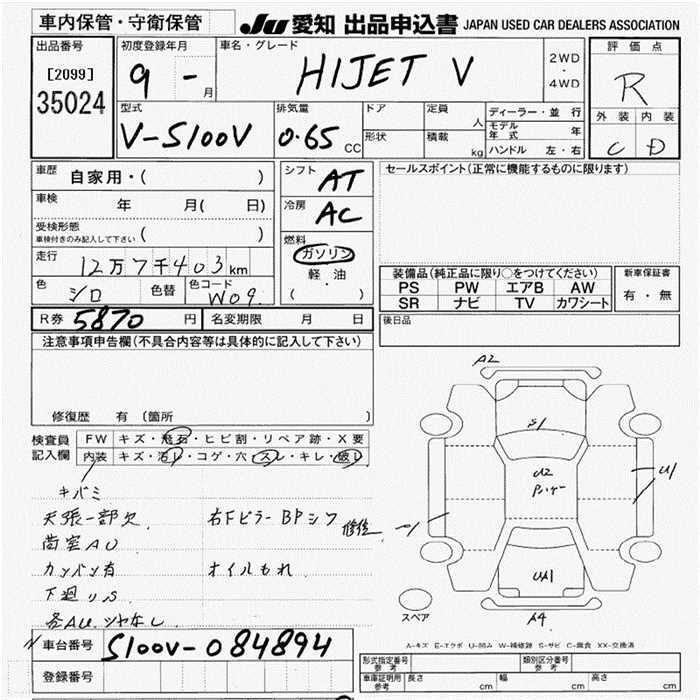 車内保管・守衛保管
JU 愛知 出品申込書 JAPAN USED CAR DEALERS ASSOCIATION
出品番号
[2099]
35024
初度登録年月
9 - 月
車名・グレード
HIJET V
2WD
・
4WD
評価点
R
外装 内装
C D
型式
V-S100V
排気量
0.65 CC
ドア
形状
定員 人
積載 kg
ディーラー・並行
モデル年式 年
ハンドル 左・右
車歴 自家用・( )
車検 年 月( 日)
受検形態
車検付きのみ記入して下さい ( )
走行 12万7千403km
色 シロ 色替 色コード W09
シフト AT
冷房 AC
燃料
ガソリン
軽・油
( )
セールスポイント(正常に機能するものに限ります)
装備品(純正品に限り○をつけてください)
PS PW エアB AW
SR ナビ TV カワシート
新車保証書
有・無
R券 5870 円 名変期限 月 日
後日品
注意事項申告欄(不具合内容等は具体的に記入して下さい)
修復歴 有〔箇所 〕
検査員記入欄
FW キズ・飛石・ヒビ割・リペア跡・X要
内装 キズ・汚レ・コゲ・穴・スレ・キレ・破レ
キバミ
天張一部欠 右Fピラー BPシワ 修復
荷室AU
カンバン有 オイルもれ
下廻りS
各AU シャなし
A2
S1
U2
U1
UA1
A4
スペア
A-キズ E-エクボ U-凹み W-補修跡 S-サビ C-腐食 XX-交換済
車台番号 S100V-084894
登録番号
形式指定番号 参考
類別区分番号 参考
車庫証明用 参考 長さ cm 幅 cm 高さ cm